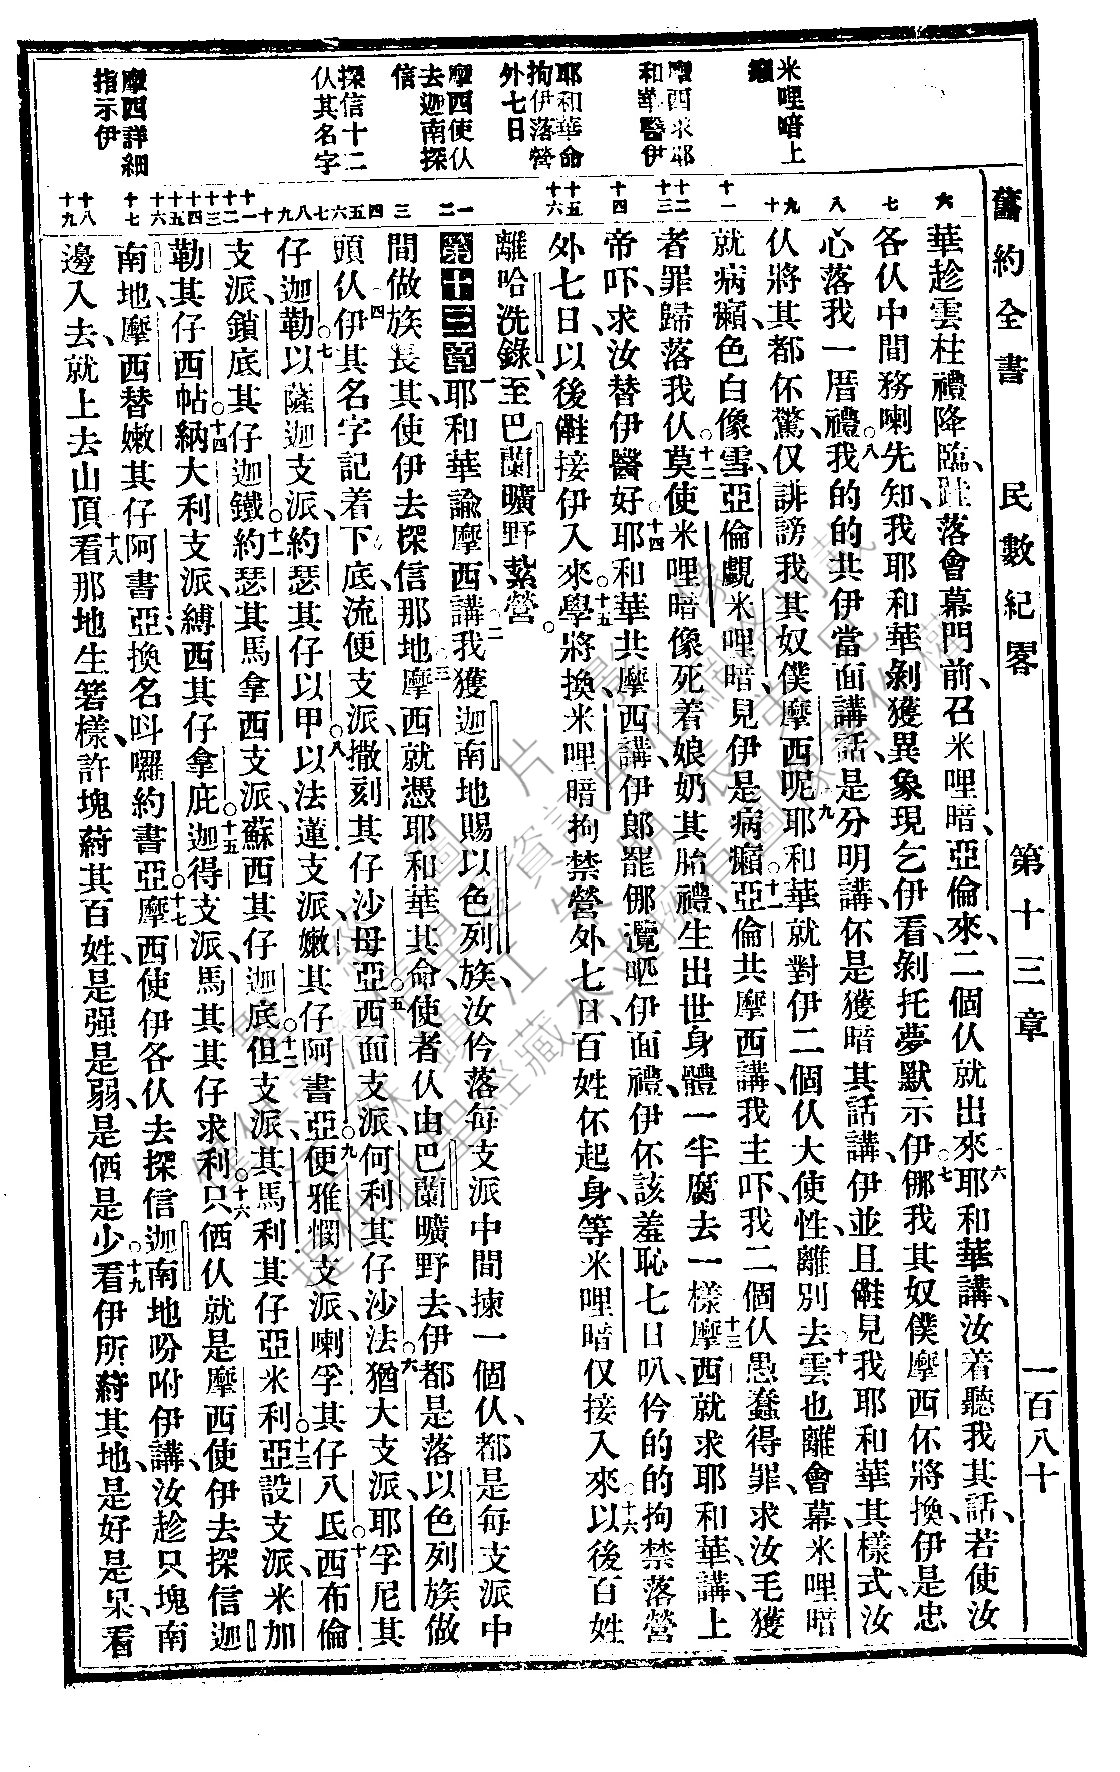 舊約全書 民數紀畧 第十三章 一百八十
米哩暗上癩
摩西求耶和華醫伊
耶和華命拘伊落營外七日
摩西使仈去迦南探信
探信十二仈其名字
摩西詳細指示伊
六 七 八 九 十 十一 十二 十三 十四 十五 十六 一 二 三 四 五 六 七 八 九 十 十一 十二 十三 十四 十五 十六 十七 十八 十九
華趁雲柱禮降臨、跬落會幕門前、召米哩暗、亞倫來、二個仈就出來○六耶和華講、汝着聽我其話、若使汝
各仈中間務喇先知、我耶和華剝獲異象現乞伊看、剝托夢默示伊○七㑚我其奴僕摩西伓將換、伊是忠
心落我一厝禮○八我的的共伊當面講話、是分明講、伓是獲暗其話講、伊並且𣍐見我耶和華其樣式、汝
仈將其都伓驚、仅誹謗我其奴僕摩西呢○九耶和華就對伊二個仈大使性、離別去○十雲也離會幕、米哩暗
就病癩、色白像雪、亞倫覷米哩暗、見伊是病癩○十一亞倫共摩西講、我主吓、我二個仈愚蠢得罪、求汝毛獲
者罪歸落我仈○十二莫使米哩暗像死着娘奶其胎禮、生出世身體一半腐去一樣○十三摩西就求耶和華講、上
帝吓、求汝替伊醫好○十四耶和華共摩西講、伊郎罷㑚瀺哂伊面禮、伊伓該羞恥七日叭、伶的的拘禁落營
外七日、以後𣍐接伊入來○十五學將換米哩暗拘禁營外七日、百姓伓起身、等米哩暗仅接入來○十六以後百姓
離哈洗錄、至巴蘭曠野紮營。
第十三章 一耶和華諭摩西講○二我獲迦南地賜以色列族、汝伶落每支派中間揀一個仈、都是每支派中
間做族長其、使伊去探信那地○三摩西就憑耶和華其命、使者仈由巴蘭曠野去、伊都是落以色列族做
頭仈○四伊其名字記着下底、流便支派、撒刻其仔沙母亞○五西面支派、何利其仔沙法○六猶大支派、耶孚尼其
仔迦勒○七以薩迦支派、約瑟其仔以甲○八以法蓮支派、嫩其仔阿書亞○九便雅憫支派、喇孚其仔八氏○十西布倫
支派、鎖底其仔迦鐵○十一約瑟其馬拿西支派、蘇西其仔迦底○十二但支派、其馬利其仔亞米利○十三亞設支派、米加
勒其仔西帖○十四納大利支派、縛西其仔拿庇○十五迦得支派、馬其其仔求利○十六只㐽仈就是摩西使伊去探信迦
南地、摩西替嫩其仔阿書亞、換名呌囉約書亞○十七摩西使伊各仈去探信迦南地、吩咐伊講、汝趁只塊南
邊入去、就上去山頂○十八看那地生箬樣、許塊蒪其百姓、是强是弱、是㐽是少○十九看伊所蒪其地、是好是呆、看